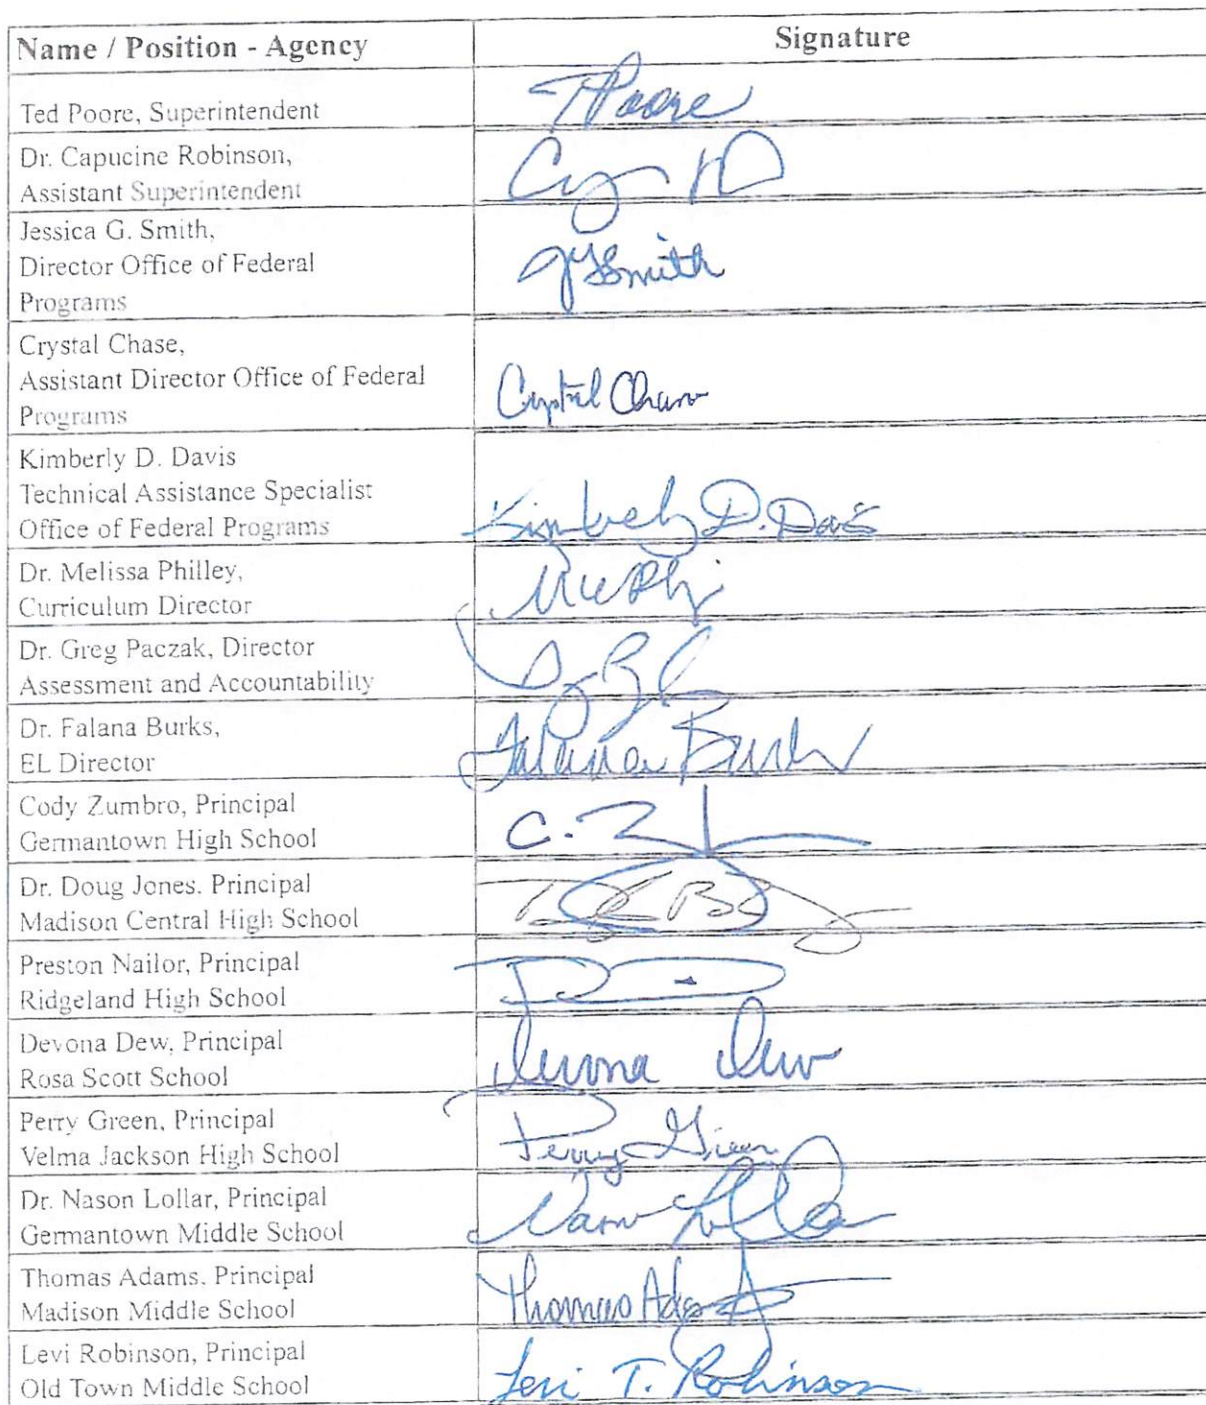 Name / Position - Agency
Signature
Ted Poore, Superintendent
TPoore
Dr. Capucine Robinson,
Assistant Superintendent
Jessica G. Smith,
Director Office of Federal
Programs
JGSmith
Crystal Chase,
Assistant Director Office of Federal
Programs
Crystal Chase
Kimberly D. Davis
Technical Assistance Specialist
Office of Federal Programs
Kimberly D. Davis
Dr. Melissa Philley,
Curriculum Director
Dr. Greg Paczak, Director
Assessment and Accountability
Dr. Falana Burks,
EL Director
Falana Burks
Cody Zumbro, Principal
Germantown High School
C. Z
Dr. Doug Jones. Principal
Madison Central High School
Preston Nailor, Principal
Ridgeland High School
Devona Dew, Principal
Rosa Scott School
Devona Dew
Perry Green, Principal
Velma Jackson High School
Perry Green
Dr. Nason Lollar, Principal
Germantown Middle School
Nason Lollar
Thomas Adams. Principal
Madison Middle School
Thomas Adams
Levi Robinson, Principal
Old Town Middle School
Levi T. Robinson